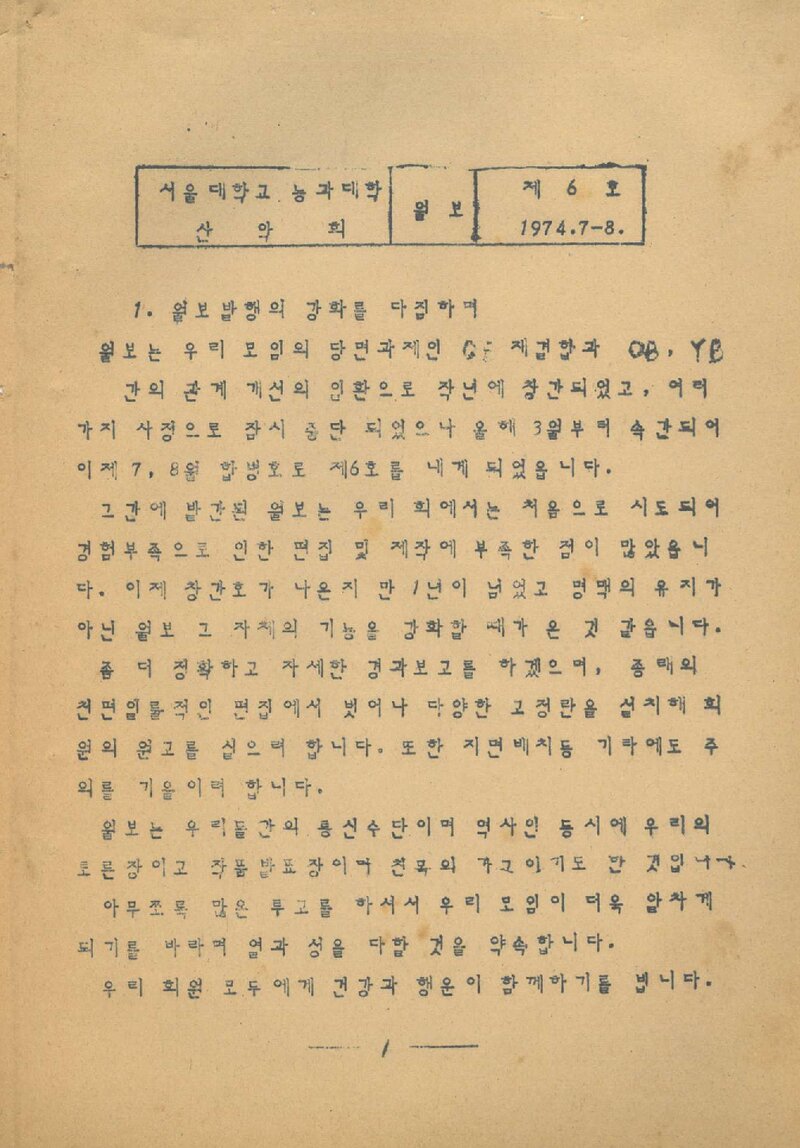 서울대학교 농과대학
산 악 회
월 보
제 6 호
1974.7-8.
1. 월보발행의 강화를 다짐하며
월보는 우리 모임의 당면과제인 재결합과 OB, YB
간의 관계 개선의 일환으로 작년에 창간되었고, 여러
가지 사정으로 잠시 중단 되었으나 올해 3월부터 속간되어
이제 7, 8월 합병호로 제6호를 내게 되었읍니다.
그간에 발간된 월보는 우리 회에서는 처음으로 시도되어
경험부족으로 인한 편집 및 제작에 부족한 점이 많았읍니
다. 이제 창간호가 나온지 만 1년이 넘었고 명맥의 유지가
아닌 월보 그 자체의 기능을 강화할 때가 온 것 같읍니다.
좀 더 정확하고 자세한 경과보고를 하겠으며, 종래의
천편일률적인 편집에서 벗어나 다양한 고정란을 설치해 회
원의 원고를 실으려 합니다. 또한 지면배치등 기타에도 주
의를 기울이려 합니다.
월보는 우리들간의 통신수단이며 역사인 동시에 우리의
토론장이고 작품발표장이며 친목의 가교이기도 한 것입니다.
아무쪼록 많은 투고를 하셔서 우리 모임이 더욱 알차게
되기를 바라며 열과 성을 다할 것을 약속합니다.
우리 회원 모두에게 건강과 행운이 함께하기를 빕니다.
1